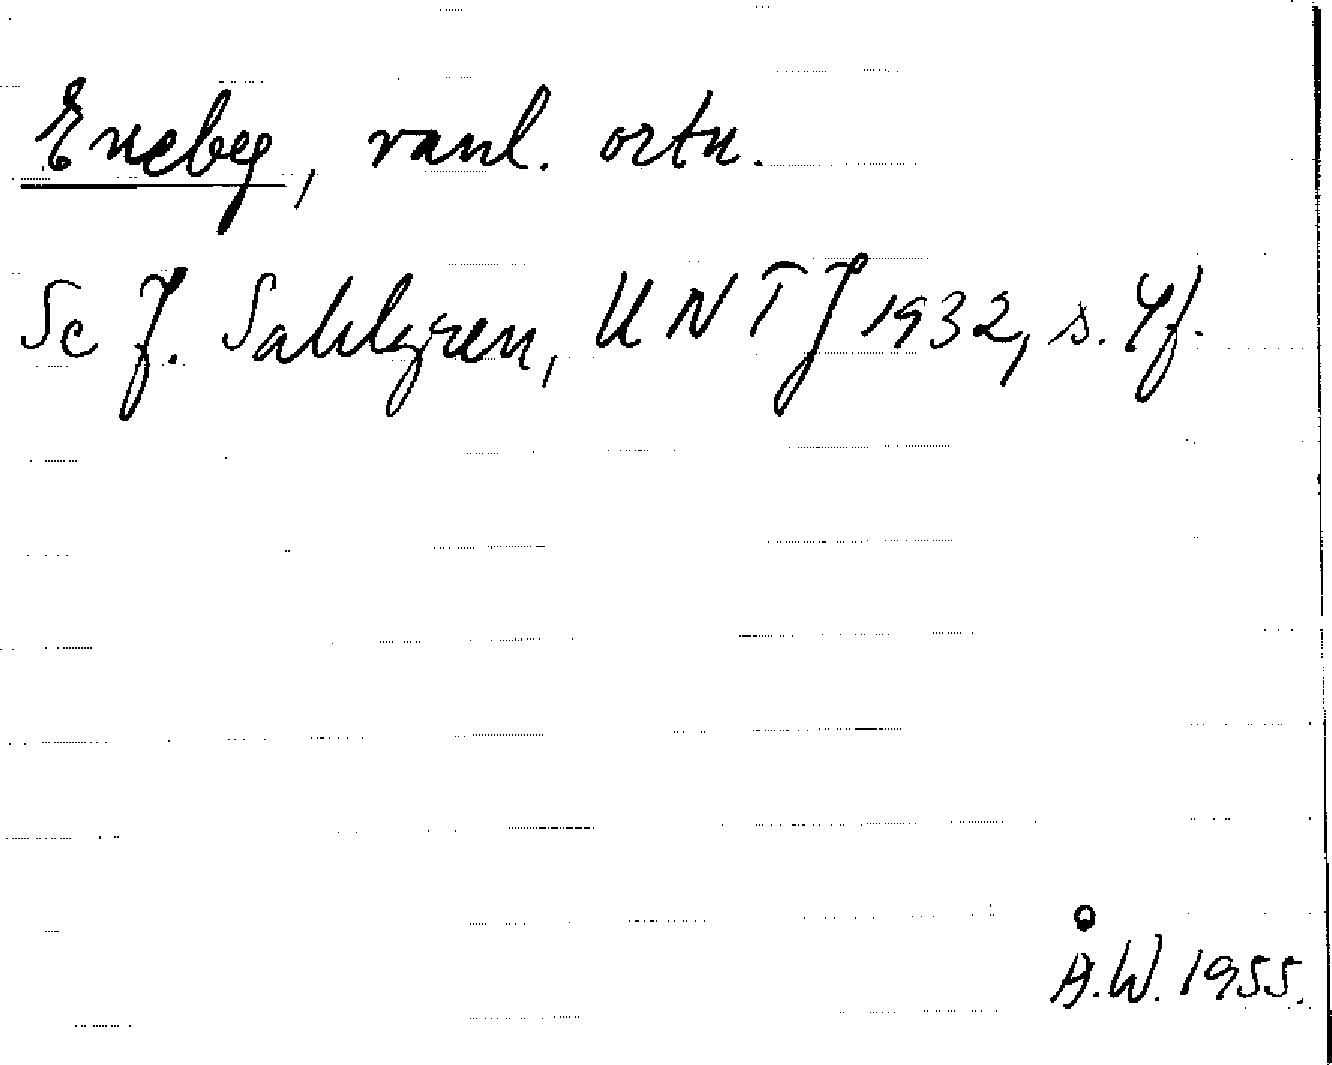 Eneby, vanl. ortn.
Se J. Sahlgren, UNT J 1932, s. 4f.
Å.W. 1955.